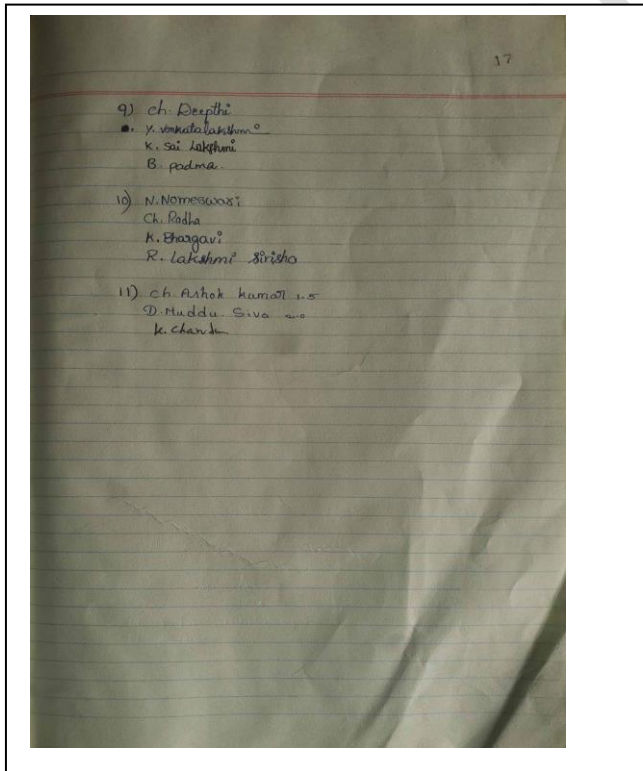 17
9) ch. Deepthi
Y. Venkatalakshmi
K. Sai Lakshmi
B. padma
10) N. Nomeswari
Ch. Radha
K. Bhargavi
R. Lakshmi Sirisha
11) ch. Ashok kumar 1.5
D. Muddu. Siva
K.